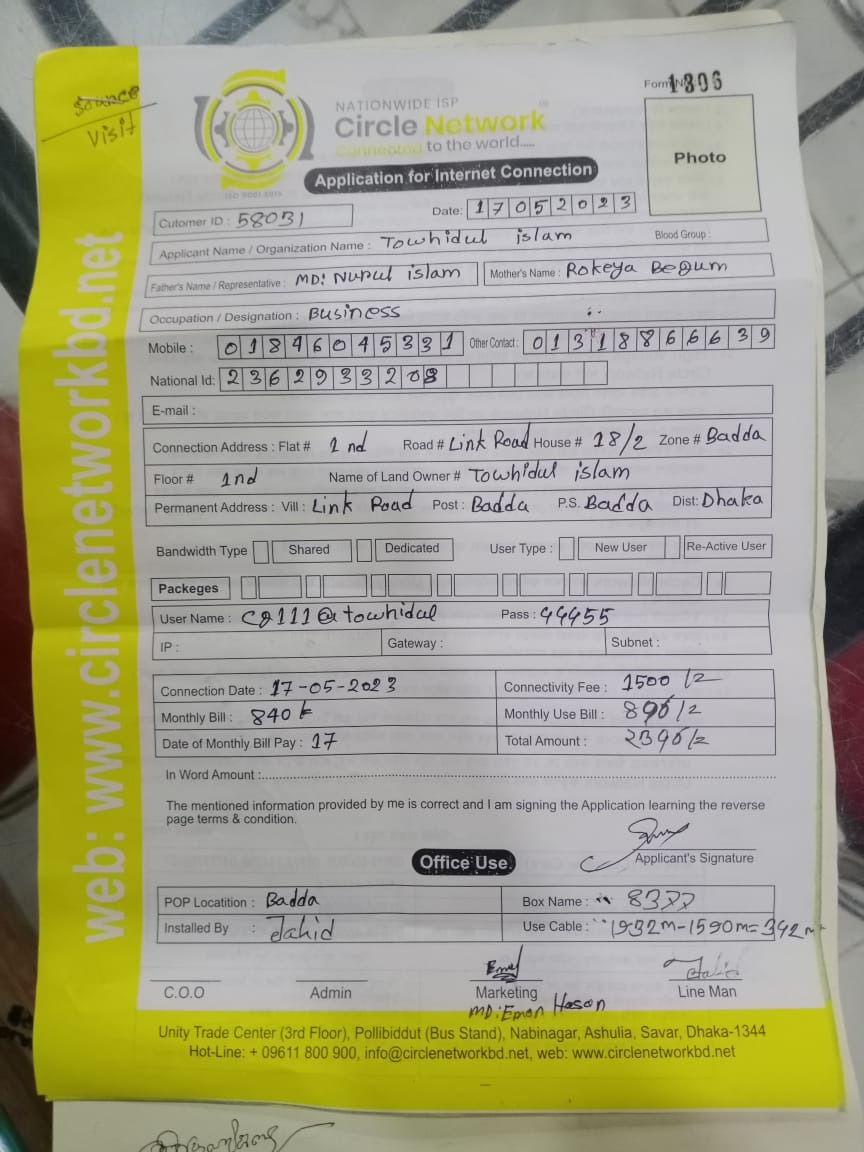 Source
Visit
NATIONWIDE ISP
Circle Network
Connected to the world.....
ISO 9001:2015
Form No 1306
Photo
Application for Internet Connection
Date: 17052023
Cutomer ID : 58031
Applicant Name / Organization Name : Towhidul islam Blood Group :
Father's Name / Representative : MD: Nurul islam Mother's Name : Rokeya Begum
Occupation / Designation : Business
Mobile : 01846045331 Other Contact : 01318866639
National Id: 2362933208
E-mail :
Connection Address : Flat # 1 nd Road # Link Road House # 18/2 Zone # Badda
Floor # 1nd Name of Land Owner # Towhidul islam
Permanent Address : Vill : Link Road Post : Badda P.S. Badda Dist: Dhaka
Bandwidth Type Shared Dedicated User Type : New User Re-Active User
Packeges
User Name : @towhidul Pass : 44455
IP : Gateway : Subnet :
Connection Date : 17-05-2023 Connectivity Fee : 1500
Monthly Bill : 840 Monthly Use Bill :
Date of Monthly Bill Pay : 17 Total Amount :
In Word Amount :
The mentioned information provided by me is correct and I am signing the Application learning the reverse
page terms & condition.
Applicant's Signature
Office Use.
POP Locatition : Badda Box Name :
Installed By : Jahid Use Cable : 1932m-1590m=342m
C.O.O Admin Marketing Line Man
MD:Emon Hasan
Unity Trade Center (3rd Floor), Pollibiddut (Bus Stand), Nabinagar, Ashulia, Savar, Dhaka-1344
Hot-Line: + 09611 800 900, info@circlenetworkbd.net, web: www.circlenetworkbd.net
web: www.circlenetworkbd.net